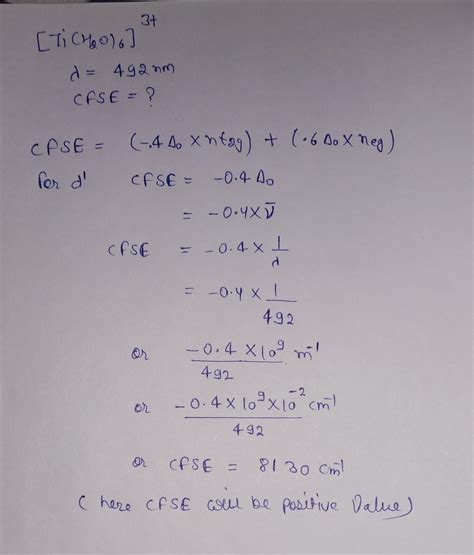 [Ti(H2O)6]3+
λ = 492 nm
CFSE = ?
CFSE = (-.4 Δo × nt2g) + (.6 Δo × neg)
for d' CFSE = -0.4 Δo
= -0.4 × ν̄
CFSE = -0.4 × 1/λ
= -0.4 × 1/492
or -0.4 × 10^9/492 m^-1
or -0.4 × 10^9 × 10^-2/492 cm^-1
or CFSE = 8130 cm^-1
(here CFSE will be positive value)